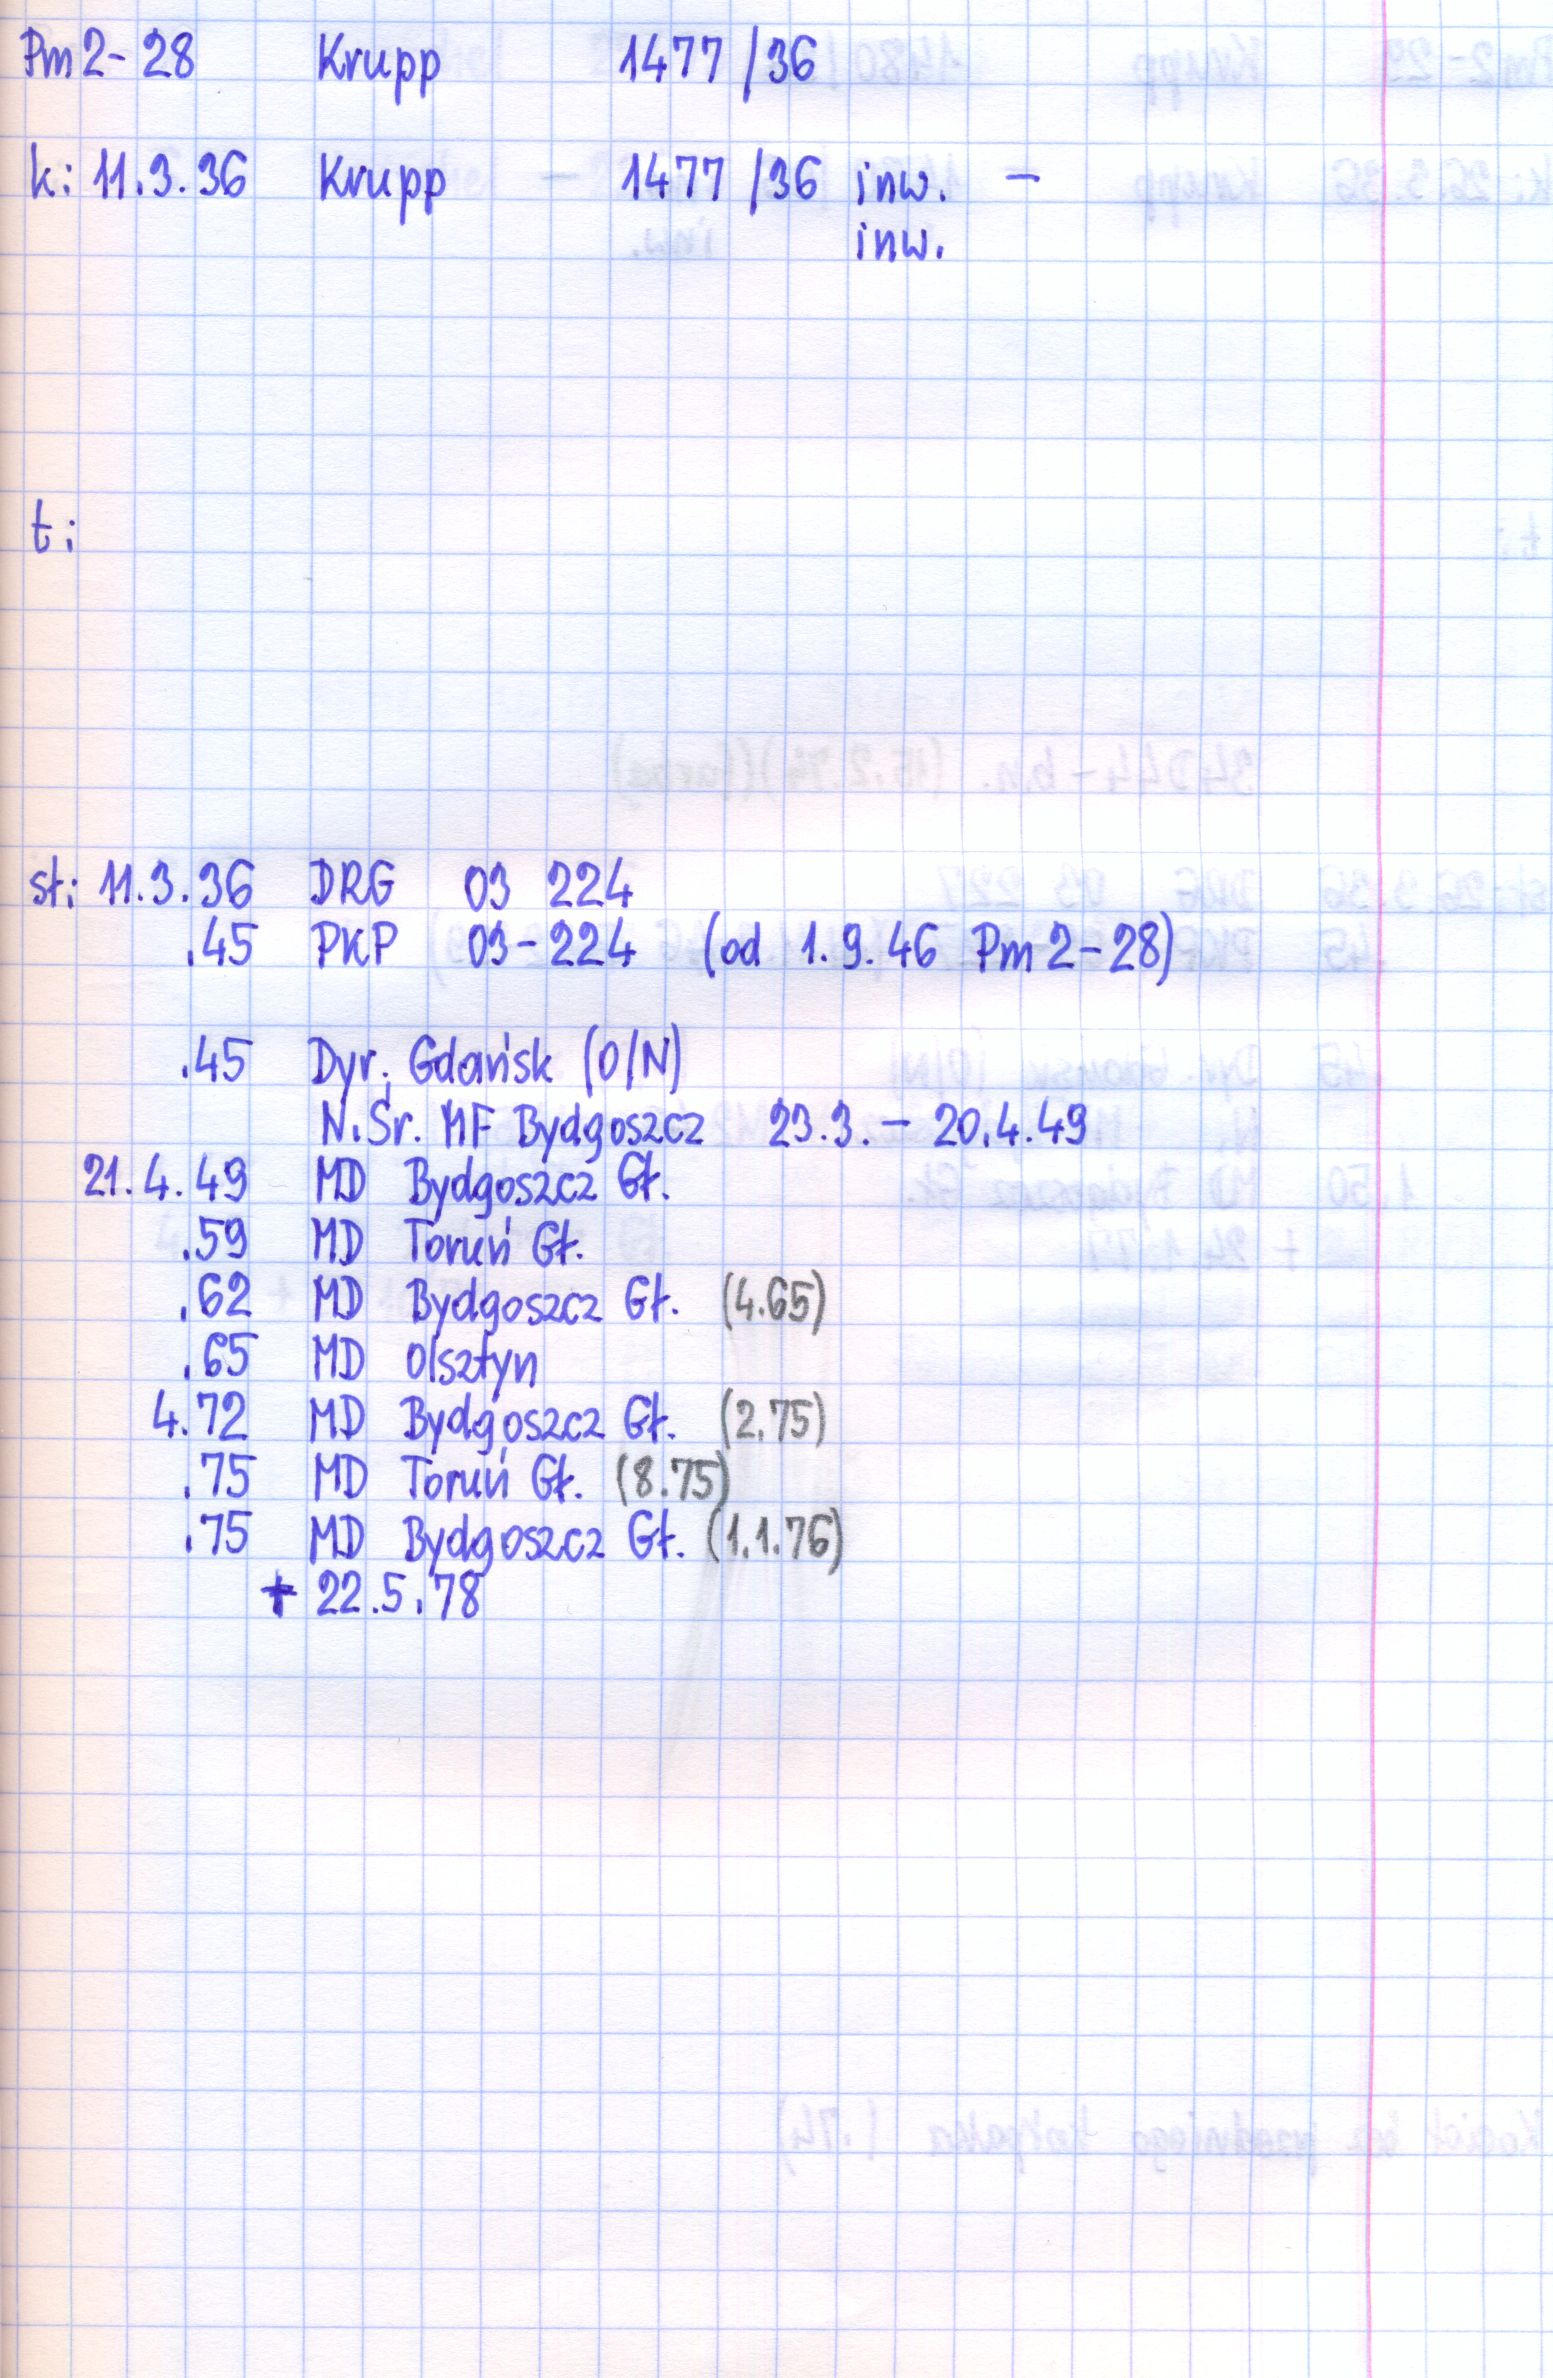 Pm2-28 Krupp 1477/36
k: 11.3.36 Krupp - 1477/36 inw. -
inw.
t:
st: 11.3.36 DRG 03 224
.45 PKP 03-224 (od 1.9.46 Pm2-28)
.45 Dyr. Gdańsk (O/N)
N.Śr. MF Bydgoszcz 23.3.- 20.4.49
21.4.49 MD Bydgoszcz Gł.
.59 MD Toruń Gł.
.62 MD Bydgoszcz Gł. (4.65)
.65 MD Olsztyn
4.72 MD Bydgoszcz Gł. (2.75)
.75 MD Toruń Gł. (8.75)
.75 MD Bydgoszcz Gł. (1.1.76)
+ 22.5.78